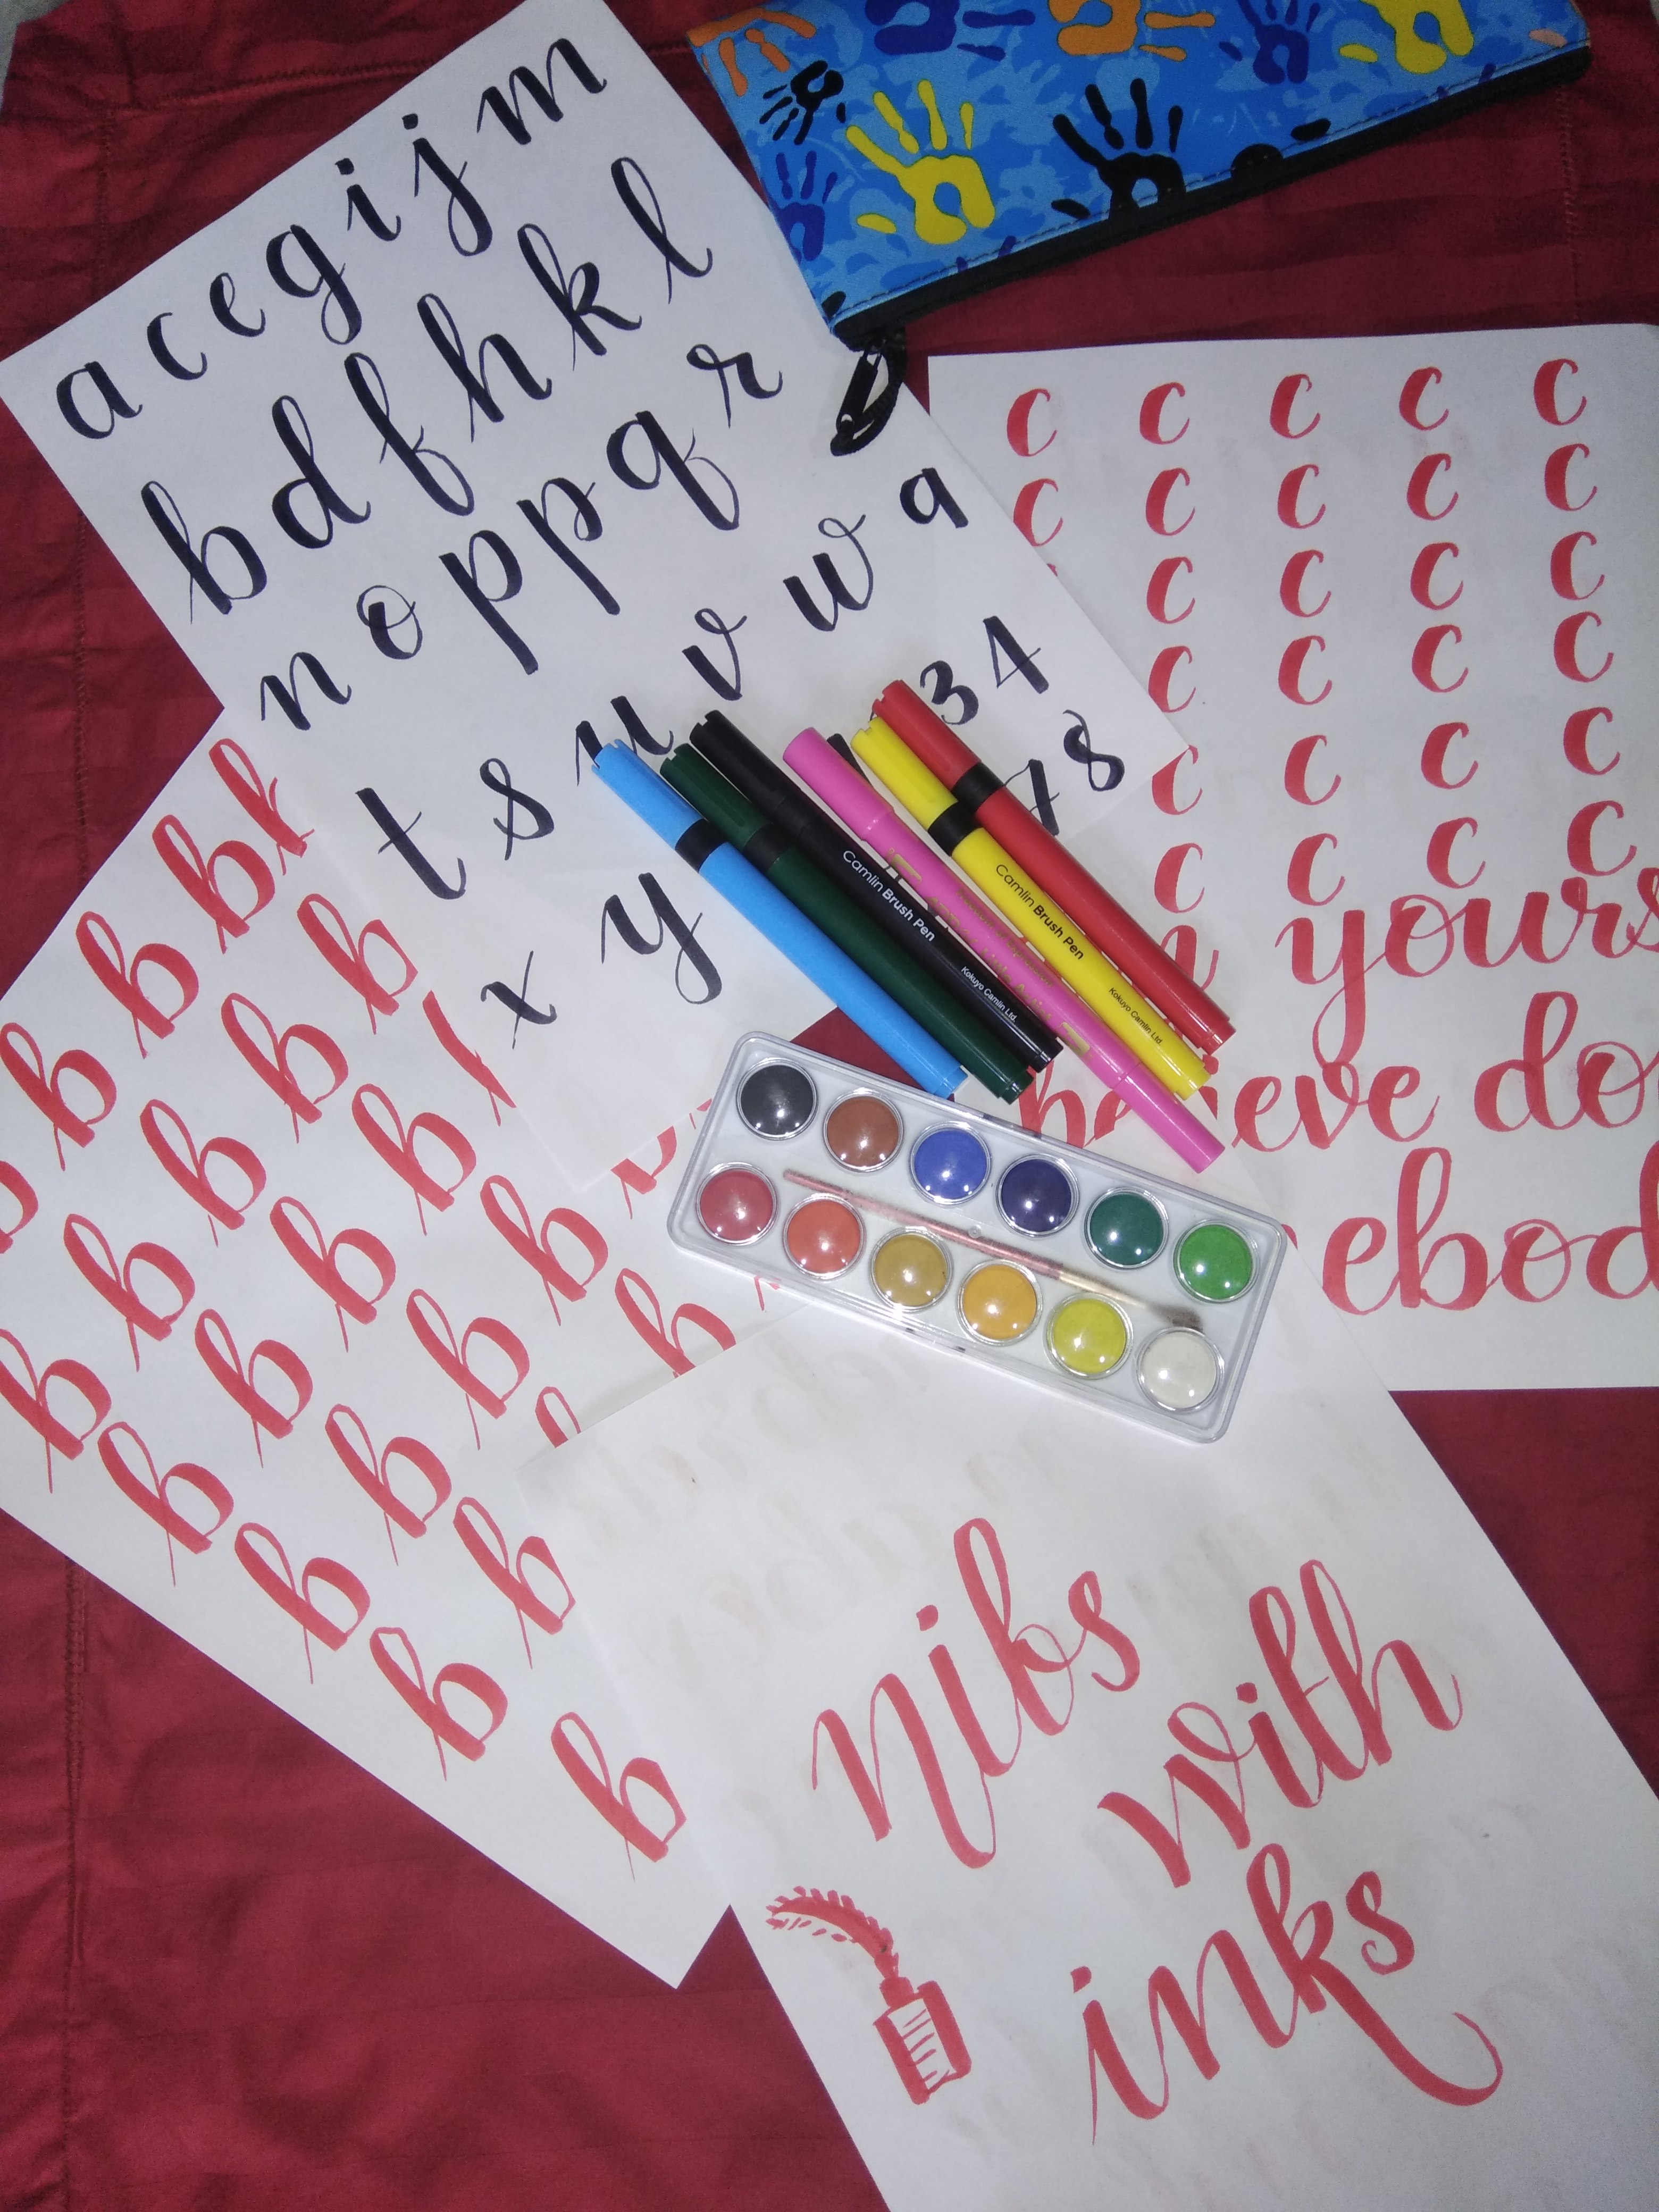 a c e g i j m
b d f h k l
n o p p q r
t s u v w a
x y
3 4
7 8
c c c c c
c c c c c
c c c c
c c c c
c c c c
c c c c
yours
eve do
ebod
b b b b
b b b b b
b b b b
b b b b
b b b
b
Camlin Brush Pen Kokuyo Camlin Ltd.
Camlin Brush Pen Kokuyo Camlin Ltd.
nibs
with
inks